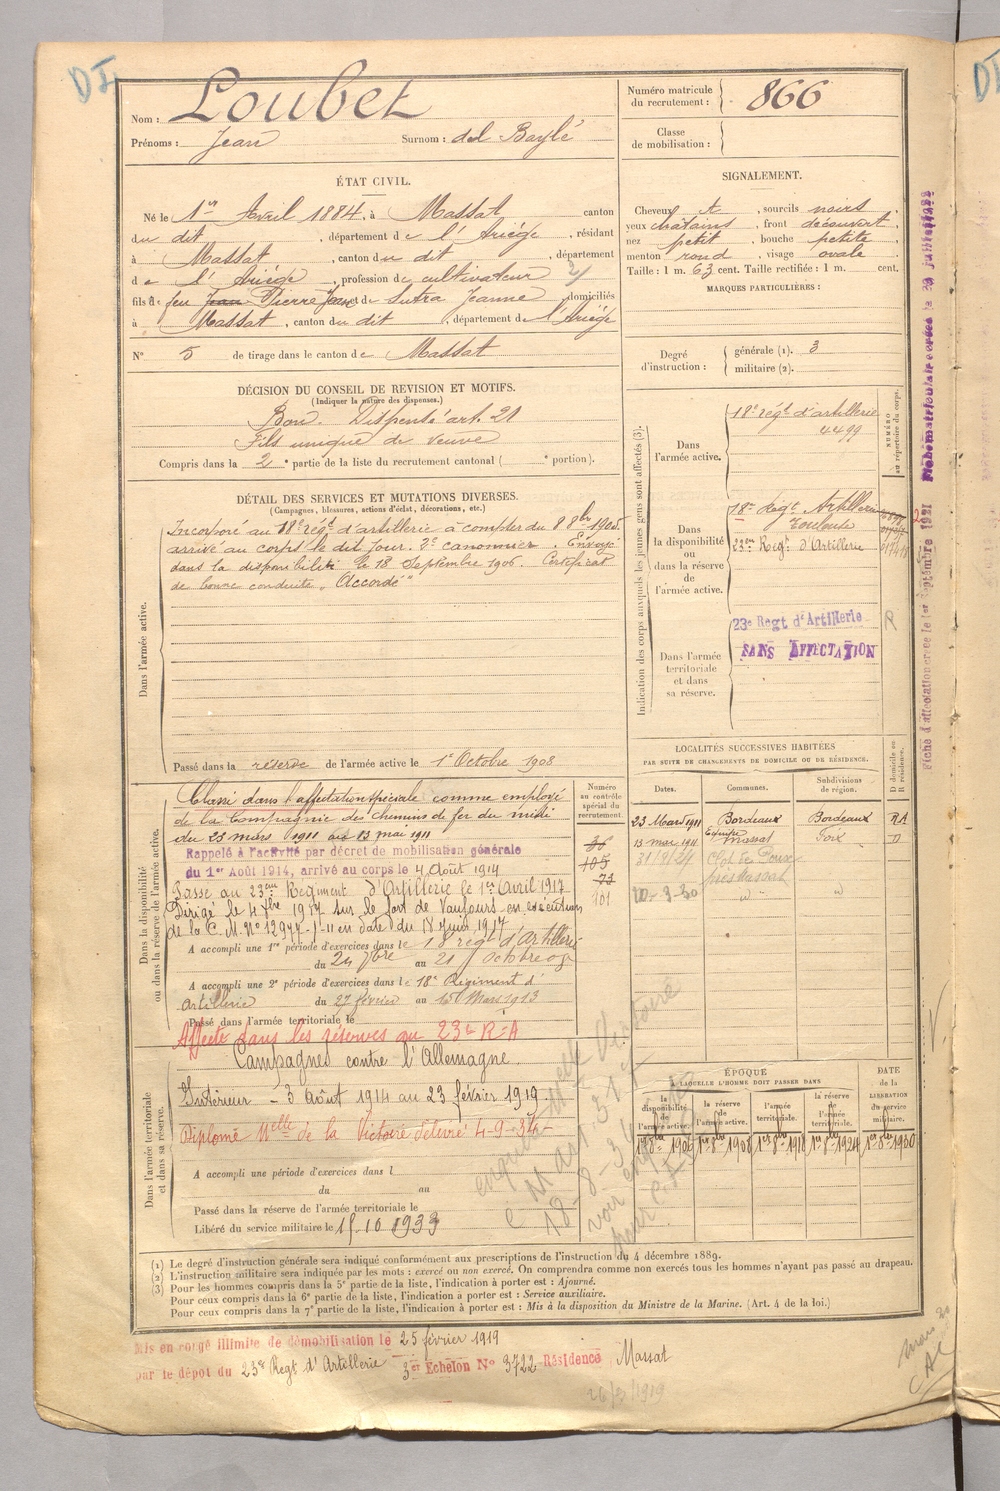 DI
Nom : Loubet
Prénoms : Jean Surnom : del Baylé
Numéro matricule du recrutement : 866
Classe de mobilisation :
ÉTAT CIVIL.
Né le 1er Avril 1884, à Massat canton
du dit, département de l'Ariège, résidant
à Massat, canton du dit, département
de l'Ariège, profession de cultivateur
fils de feu Jean Pierre Jean et de Sutra Jeanne, domiciliés
à Massat, canton du dit, département de l'Ariège
N° 5 de tirage dans le canton de Massat
SIGNALEMENT.
Cheveux et, sourcils noirs,
yeux châtains, front découvert,
nez petit, bouche petite,
menton rond, visage ovale
Taille : 1 m. 63 cent. Taille rectifiée : 1 m. cent.
MARQUES PARTICULIÈRES :
Degré d'instruction : générale (1). 3
militaire (2).
DÉCISION DU CONSEIL DE REVISION ET MOTIFS.
(Indiquer la nature des dispenses.)
Bon. Dispensé art. 21
Fils unique de veuve
Compris dans la 2e partie de la liste du recrutement cantonal ( e portion).
DÉTAIL DES SERVICES ET MUTATIONS DIVERSES.
(Campagnes, blessures, actions d'éclat, décorations, etc.)
Dans l'armée active.
Incorporé au 18e régt d'artillerie à compter du 8 8bre 1905.
arrivé au corps le dit jour. 2e canonnier. Envoyé
dans la disponibilité le 18 Septembre 1906. Certificat
de bonne conduite "Accordé"
Passé dans la réserve de l'armée active le 1er Octobre 1908
Indication des corps auxquels les jeunes gens sont affectés (3).
NUMÉRO au répertoire du corps.
Dans l'armée active.
18e régt d'artillerie
4499
Dans la disponibilité ou dans la réserve de l'armée active.
18e Régt Artillerie
Toulouse
23eme Régt d'Artillerie
Dans l'armée territoriale et dans sa réserve.
23e Regt d'Artillerie
R
SANS AFFECTATION
Fiche d'affectation créée le 1er septembre 1921 Fiche matriculaire créée le
LOCALITÉS SUCCESSIVES HABITÉES
PAR SUITE DE CHANGEMENTS DE DOMICILE OU DE RÉSIDENCE.
Dates. Communes. Subdivisions de région. D domicile ou R résidence.
23 Mars 1911 Bordeaux Bordeaux RA
13 mai 1911 Massat Foix D
près Massat
-3-30 " "
Dans la disponibilité ou dans la réserve de l'armée active.
Numéro au contrôle spécial du recrutement.
36
105
73
101
Classé dans l'affectation spéciale comme employé
de la Compagnie des chemins de fer du midi
du 23 mars 1911 au 13 mai 1911
Rappelé à l'activité par décret de mobilisation générale
du 1er Août 1914, arrivé au corps le 4 Août 1914
Passé au 23eme Régiment d'Artillerie le 1er Avril 1917
Dirigé le 4 7bre 1917 sur le fort de Vaujours en exécution
de la C. M. N° 12977-1-11 en date du 18 Juin 1917
A accompli une 1re période d'exercices dans le 18e régt d'artillerie
du 24 7bre au 21 Octobre 09
A accompli une 2e période d'exercices dans le 18e Régiment d'
Artillerie du 27 février au 15 Mars 1913
Passé dans l'armée territoriale le
Affecté dans les réserves au 23e R.A
Dans l'armée territoriale et dans sa réserve.
Campagnes contre l'Allemagne.
Intérieur - 3 Août 1914 au 23 février 1919
Diplôme Melle de la Victoire délivré 4-9-34-
A accompli une période d'exercices dans l
du au
Passé dans la réserve de l'armée territoriale le
Libéré du service militaire le 15-10 1933
ÉPOQUE
À LAQUELLE L'HOMME DOIT PASSER DANS
la disponibilité de l'armée active. la réserve de l'armée active. l'armée territoriale. la réserve de l'armée territoriale. DATE de la LIBÉRATION du service militaire.
(1) Le degré d'instruction générale sera indiqué conformément aux prescriptions de l'instruction du 4 décembre 1889.
(2) L'instruction militaire sera indiquée par les mots : exercé ou non exercé. On comprendra comme non exercés tous les hommes n'ayant pas passé au drapeau.
(3) Pour les hommes compris dans la 5e partie de la liste, l'indication à porter est : Ajourné.
Pour ceux compris dans la 6e partie de la liste, l'indication à porter est : Service auxiliaire.
Pour ceux compris dans la 7e partie de la liste, l'indication à porter est : Mis à la disposition du Ministre de la Marine. (Art. 4 de la loi.)
Mis en congé illimité de démobilisation le 25 février 1919
par le dépot du 23e Régt d'Artillerie 3er Echelon N° 3722 Résidence Massat
26/3/1919